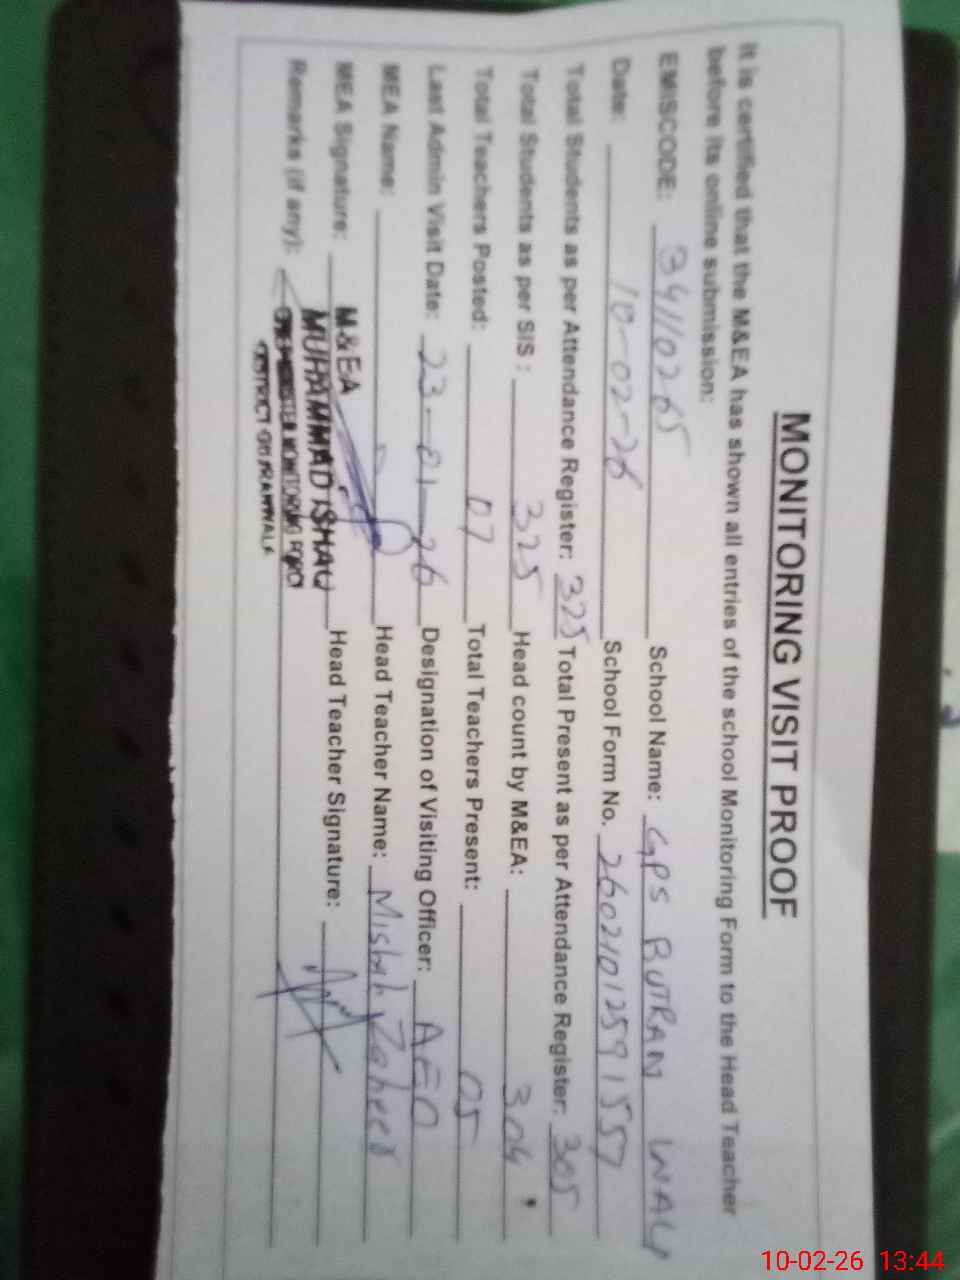 MONITORING VISIT PROOF
It is certified that the M&EA has shown all entries of the school Monitoring Form to the Head Teacher
before its online submission:
EMISCODE: 34110265 School Name: GPS BUTRAN WALI
Date: 10-02-26 School Form No. 2602101259157
Total Students as per Attendance Register: 325 Total Present as per Attendance Register: 305
Total Students as per SIS : 325 Head count by M&EA: 304
Total Teachers Posted: 07 Total Teachers Present: 05
Last Admin Visit Date: 23-01-26 Designation of Visiting Officer: AEO
MEA Name: Head Teacher Name: Misbah Zaheer
MEA Signature: M&EA Head Teacher Signature:
MUHAMMAD ISHAQ
Remarks (if any): MONITORING FORCE
DISTRICT GUJRANWALA
10-02-26 13:44